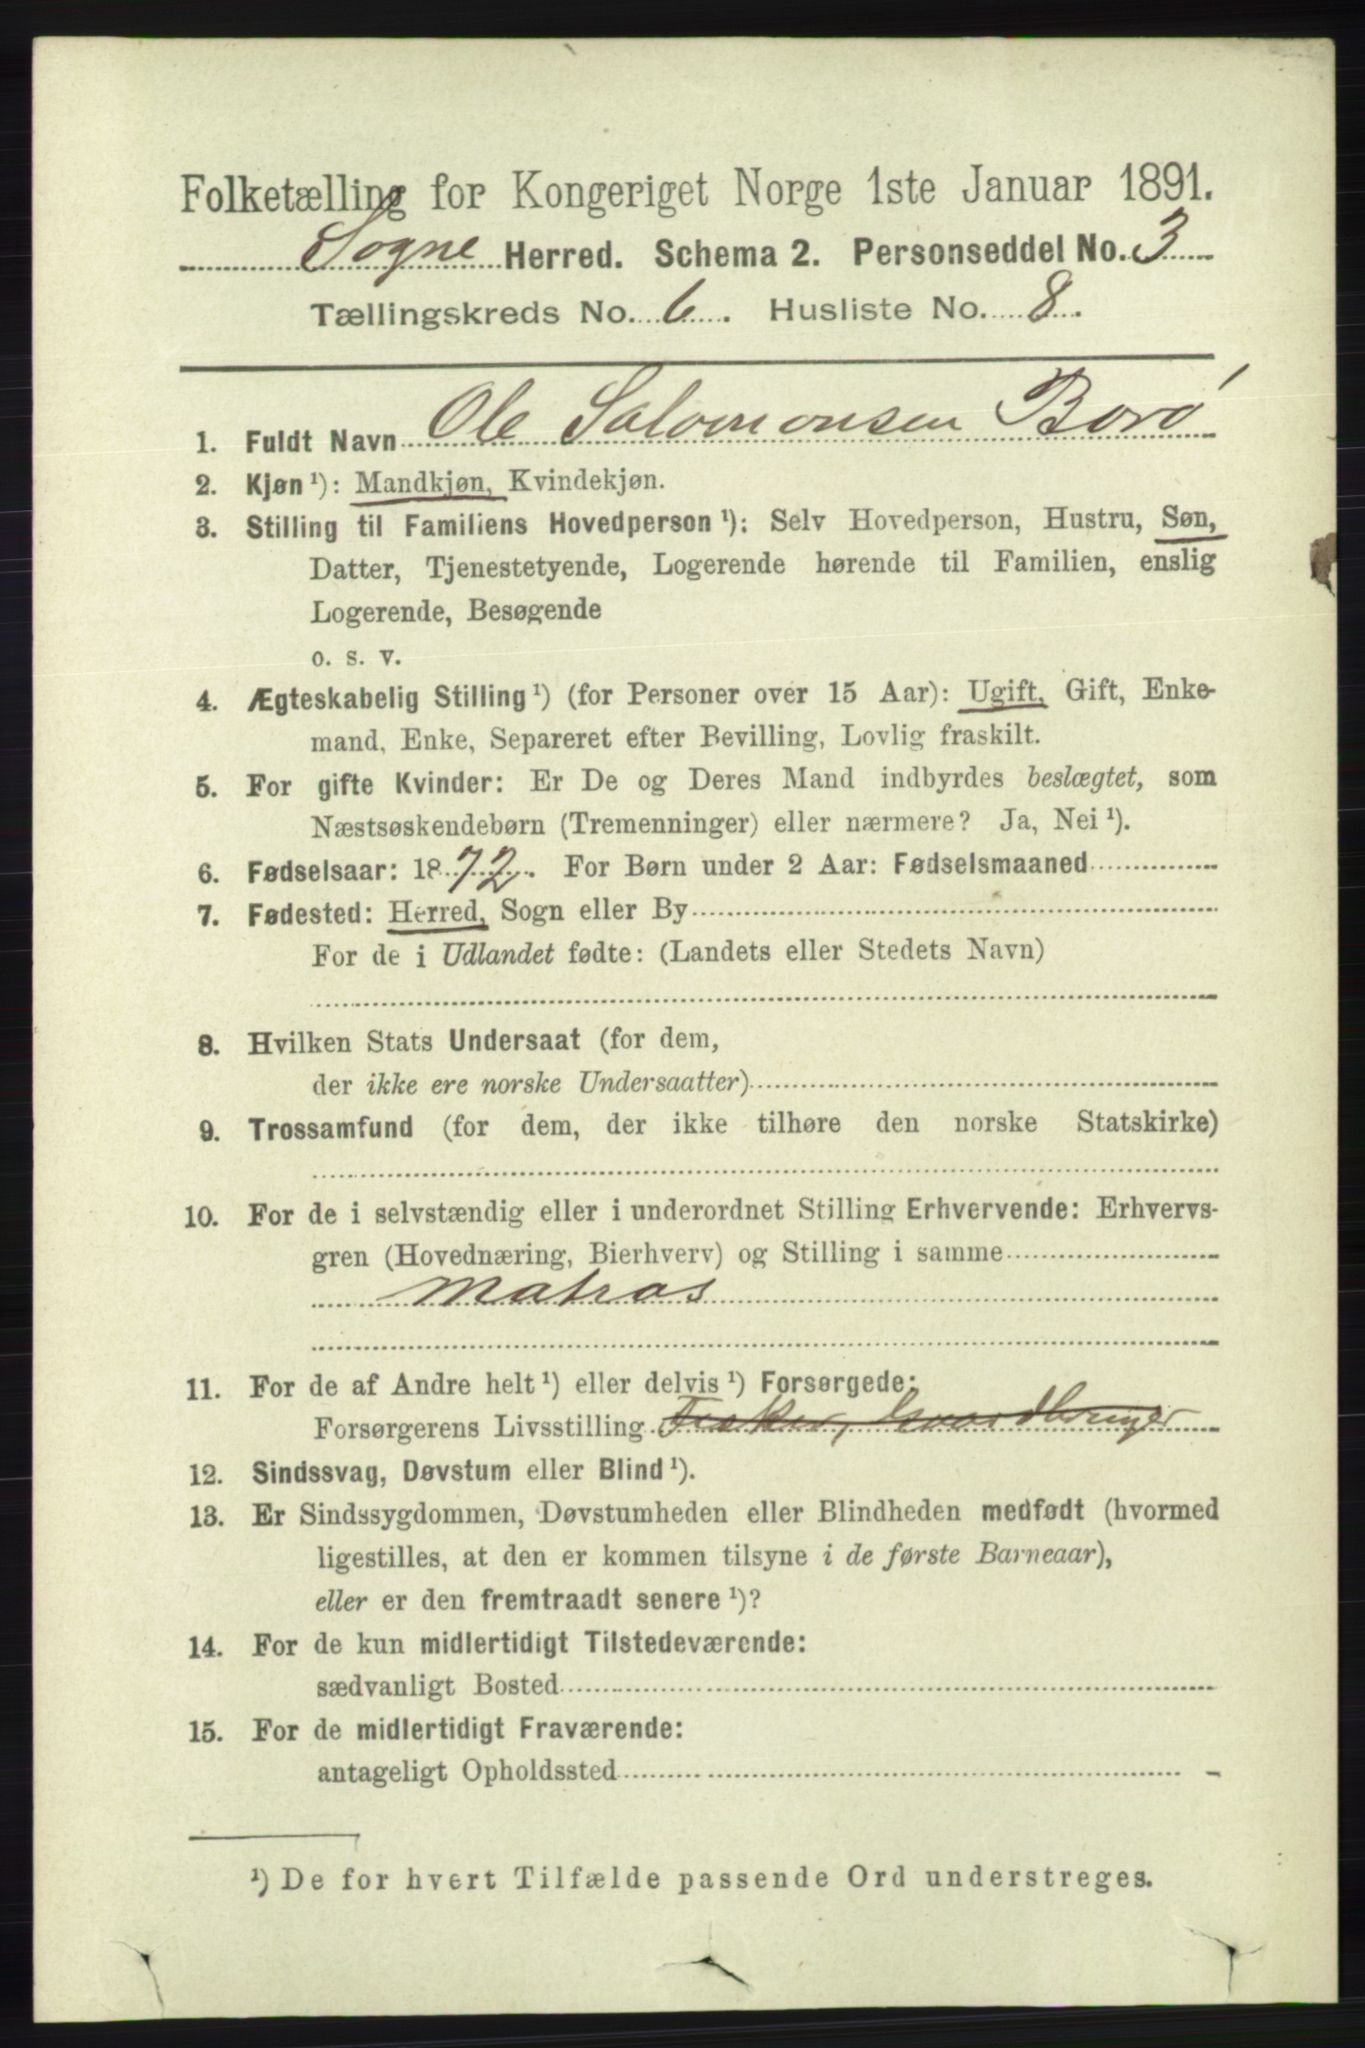 Folketælling for Kongeriget Norge 1ste Januar 1891.
Sogne Herred. Schema 2. Personseddel No. 3
Tællingskreds No. 6. Husliste No. 8.
1. Fuldt Navn Ole Salomonsen Borö
2. Kjøn¹): Mandkjøn, Kvindekjøn.
3. Stilling til Familiens Hovedperson¹): Selv Hovedperson, Hustru, Søn,
Datter, Tjenestetyende, Logerende hørende til Familien, enslig
Logerende, Besøgende
o. s. v.
4. Ægteskabelig Stilling¹) (for Personer over 15 Aar): Ugift, Gift, Enke-
mand, Enke, Separeret efter Bevilling, Lovlig fraskilt.
5. For gifte Kvinder: Er De og Deres Mand indbyrdes beslægtet, som
Næstsøskendebørn (Tremenninger) eller nærmere? Ja, Nei¹).
6. Fødselsaar: 1872. For Børn under 2 Aar: Fødselsmaaned
7. Fødested: Herred, Sogn eller By
For de i Udlandet fødte: (Landets eller Stedets Navn)
8. Hvilken Stats Undersaat (for dem,
der ikke ere norske Undersaatter)
9. Trossamfund (for dem, der ikke tilhøre den norske Statskirke)
10. For de i selvstændig eller i underordnet Stilling Erhvervende: Erhvervs-
gren (Hovednæring, Bierhverv) og Stilling i samme
Matros
11. For de af Andre helt¹) eller delvis¹) Forsørgede:
Forsørgerens Livsstilling
12. Sindssvag, Døvstum eller Blind¹).
13. Er Sindssygdommen, Døvstumheden eller Blindheden medfødt (hvormed
ligestilles, at den er kommen tilsyne i de første Barneaar),
eller er den fremtraadt senere¹)?
14. For de kun midlertidigt Tilstedeværende:
sædvanligt Bosted
15. For de midlertidigt Fraværende:
antageligt Opholdssted
¹) De for hvert Tilfælde passende Ord understreges.